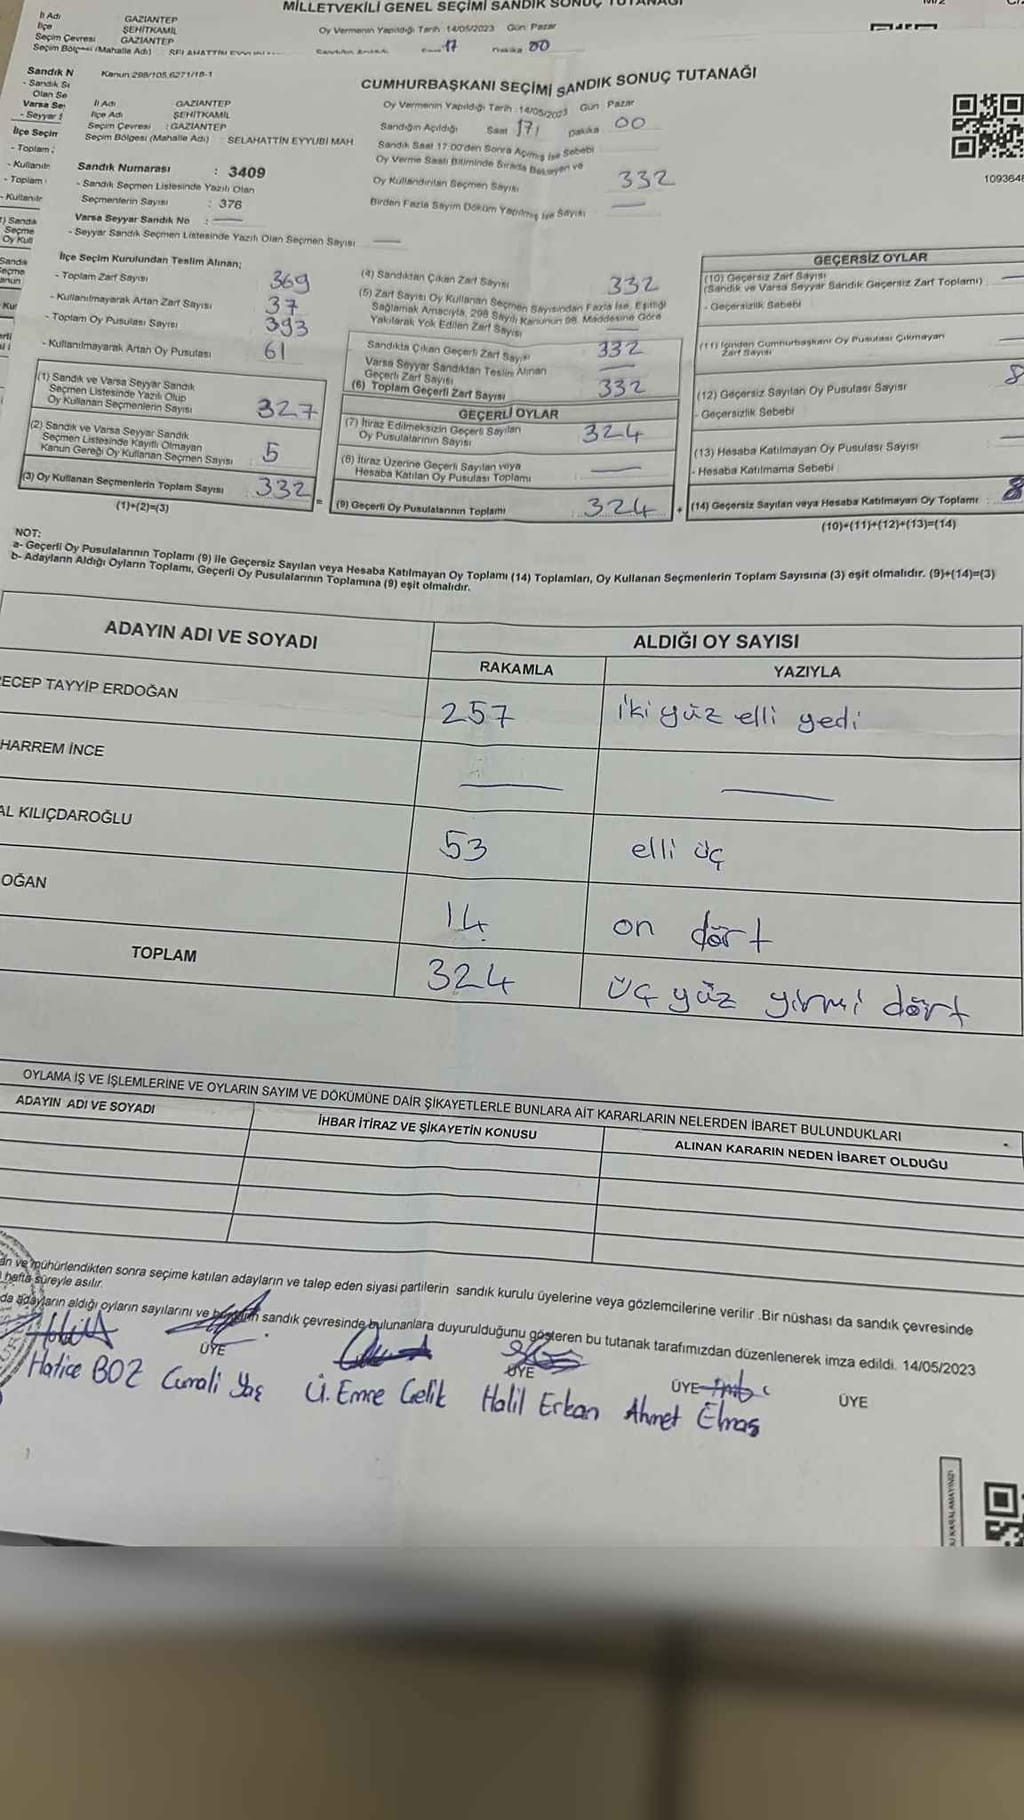 MİLLETVEKİLİ GENEL SEÇİMİ SANDIK SONUÇ TUTANAĞI
İl Adı GAZİANTEP
İlçe ŞEHİTKAMİL
Seçim Çevresi GAZİANTEP
Seçim Bölgesi (Mahalle Adı)
Oy Vermenin Yapıldığı Tarih 14/05/2023 Gün Pazar
17 00
Sandık N
- Sandık Se
Olan Se
Varsa Se
- Seyyar S
İlçe Seçim
- Toplam
- Kullanılm
- Toplam
- Kullanılr
Kanun 298/105,6271/18-1
CUMHURBAŞKANI SEÇİMİ SANDIK SONUÇ TUTANAĞI
İl Adı GAZİANTEP
İlçe Adı ŞEHİTKAMİL
Seçim Çevresi : GAZİANTEP
Seçim Bölgesi (Mahalle Adı) SELAHATTİN EYYUBİ MAH
Oy Vermenin Yapıldığı Tarih : 14/05/2023 Gün Pazar
Sandığın Açıldığı Saat 17 Dakika 00
Sandık Saat 17:00'den Sonra Açılmış İse Sebebi
Oy Verme Saati Bitiminde Sırada Bekleyen ve
Oy Kullandırılan Seçmen Sayısı 332
Birden Fazla Sayım Döküm Yapılmış İse Sayısı —
Sandık Numarası : 3409
- Sandık Seçmen Listesinde Yazılı Olan
Seçmenlerin Sayısı : 376
Varsa Seyyar Sandık No : —
- Seyyar Sandık Seçmen Listesinde Yazılı Olan Seçmen Sayısı —
İlçe Seçim Kurulundan Teslim Alınan;
- Toplam Zarf Sayısı 369
- Kullanılmayarak Artan Zarf Sayısı 37
- Toplam Oy Pusulası Sayısı 393
- Kullanılmayarak Artan Oy Pusulası 61
(1) Sandık ve Varsa Seyyar Sandık
Seçmen Listesinde Yazılı Olup
Oy Kullanan Seçmenlerin Sayısı 327
(2) Sandık ve Varsa Seyyar Sandık
Seçmen Listesinde Kayıtlı Olmayan
Kanun Gereği Oy Kullanan Seçmen Sayısı 5
(3) Oy Kullanan Seçmenlerin Toplam Sayısı 332 =
(1)+(2)=(3)
(4) Sandıktan Çıkan Zarf Sayısı 332
(5) Zarf Sayısı Oy Kullanan Seçmen Sayısından Fazla İse, Eşitliği
Sağlamak Amacıyla, 298 Sayılı Kanunun 98. Maddesine Göre
Yakılarak Yok Edilen Zarf Sayısı —
Sandıkta Çıkan Geçerli Zarf Sayısı 332
Varsa Seyyar Sandıktan Teslim Alınan
Geçerli Zarf Sayısı —
(6) Toplam Geçerli Zarf Sayısı 332
GEÇERLİ OYLAR
(7) İtiraz Edilmeksizin Geçerli Sayılan
Oy Pusulalarının Sayısı 324
(8) İtiraz Üzerine Geçerli Sayılan veya
Hesaba Katılan Oy Pusulası Toplamı —
(9) Geçerli Oy Pusulalarının Toplamı 324 +
GEÇERSİZ OYLAR
(10) Geçersiz Zarf Sayısı
(Sandık ve Varsa Seyyar Sandık Geçersiz Zarf Toplamı) —
- Geçersizlik Sebebi
(11) İçinden Cumhurbaşkanı Oy Pusulası Çıkmayan
Zarf Sayısı —
(12) Geçersiz Sayılan Oy Pusulası Sayısı 8
- Geçersizlik Sebebi
(13) Hesaba Katılmayan Oy Pusulası Sayısı —
- Hesaba Katılmama Sebebi
(14) Geçersiz Sayılan veya Hesaba Katılmayan Oy Toplamı : 8
(10)+(11)+(12)+(13)=(14)
NOT:
a- Geçerli Oy Pusulalarının Toplamı (9) ile Geçersiz Sayılan veya Hesaba Katılmayan Oy Toplamı (14) Toplamları, Oy Kullanan Seçmenlerin Toplam Sayısına (3) eşit olmalıdır. (9)+(14)=(3)
b- Adayların Aldığı Oyların Toplamı, Geçerli Oy Pusulalarının Toplamına (9) eşit olmalıdır.
ADAYIN ADI VE SOYADI ALDIĞI OY SAYISI
RAKAMLA YAZIYLA
ECEP TAYYİP ERDOĞAN 257 iki yüz elli yedi
HARREM İNCE — —
AL KILIÇDAROĞLU 53 elli üç
OĞAN 14 on dört
TOPLAM 324 üç yüz yirmi dört
OYLAMA İŞ VE İŞLEMLERİNE VE OYLARIN SAYIM VE DÖKÜMÜNE DAİR ŞİKAYETLERLE BUNLARA AİT KARARLARIN NELERDEN İBARET BULUNDUKLARI
ADAYIN ADI VE SOYADI İHBAR İTİRAZ VE ŞİKAYETİN KONUSU ALINAN KARARIN NEDEN İBARET OLDUĞU
an ve mühürlendikten sonra seçime katılan adayların ve talep eden siyasi partilerin sandık kurulu üyelerine veya gözlemcilerine verilir .Bir nüshası da sandık çevresinde
hafta süreyle asılır.
da adayların aldığı oyların sayılarını ve bunların sandık çevresinde bulunanlara duyurulduğunu gösteren bu tutanak tarafımızdan düzenlenerek imza edildi. 14/05/2023
ÜYE ÜYE ÜYE ÜYE
Hatice BOZ Cumali Yaş Ü. Emre Çelik Halil Erkan Ahmet Elmas